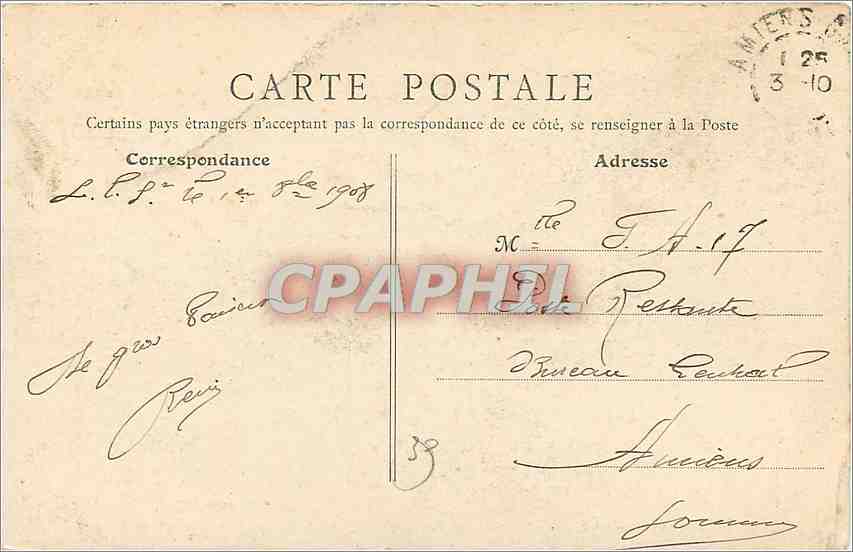 CARTE POSTALE
Certains pays étrangers n'acceptant pas la correspondance de ce côté, se renseigner à la Poste
AMIENS
1 25
3 -10
Correspondance
Adresse
le 1er 8bre 1908
Mlle J. A. 17
Poste Restante
Bureau Central
Amiens
Somme
De gros baisers
Remy
39
CPAPHIL